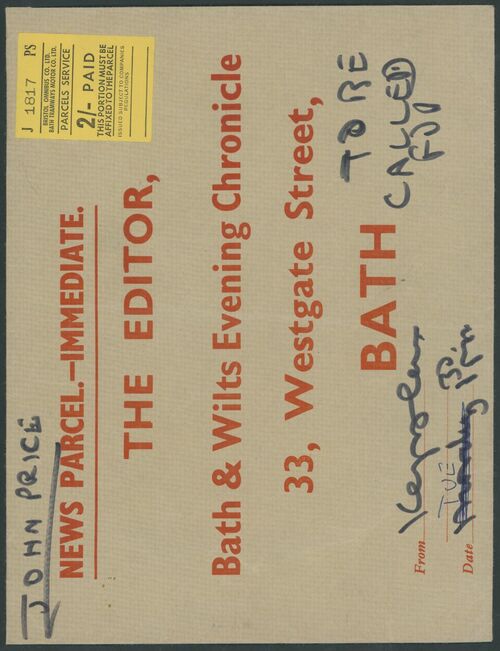 JOHN PRICE
NEWS PARCEL.—IMMEDIATE.
J 1817 PS
BRISTOL OMNIBUS CO. LTD.
BATH TRAMWAYS MOTOR CO. LTD.
PARCELS SERVICE
2/- PAID
THIS PORTION MUST BE
AFFIXED TO THE PARCEL
ISSUED SUBJECT TO COMPANIES
REGULATIONS
THE EDITOR,
Bath & Wilts Evening Chronicle
33, Westgate Street,
BATH
TO BE
CALLED
From
Date TUE